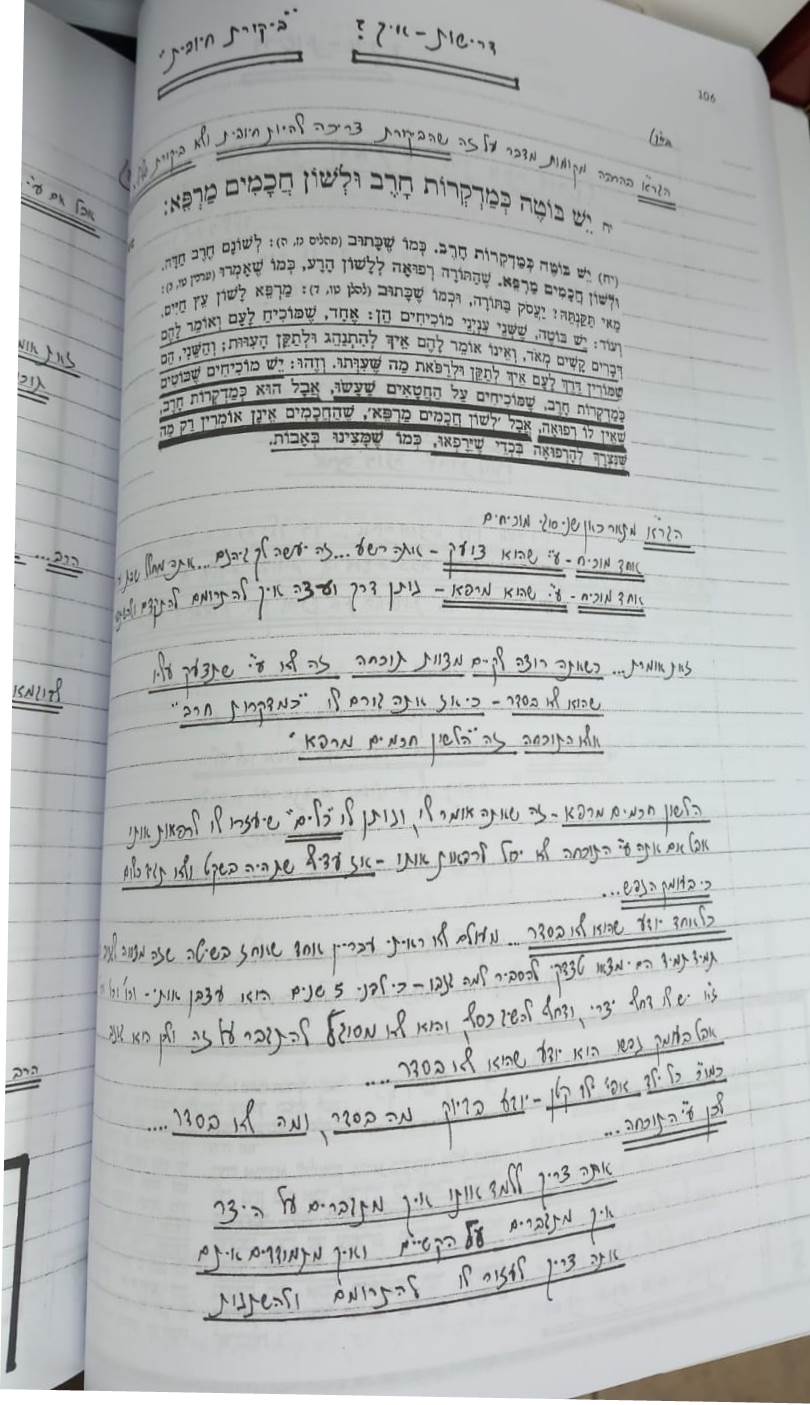 106
דרישות - איך? "ביקורת חיובית"
הגר"א בהרבה מקומות מדבר על זה שהביקורת צריכה להיות חיובית ולא ביקורת
יח יֵשׁ בּוֹטֶה כְּמַדְקְרוֹת חָרֶב וּלְשׁוֹן חֲכָמִים מַרְפֵּא:
(יח) יֵשׁ בּוֹטֶה כְּמַדְקְרוֹת חָרֶב. כְּמוֹ שֶׁכָּתוּב (תהלים נז, ה): לְשׁוֹנָם חֶרֶב חַדָּה.
וּלְשׁוֹן חֲכָמִים מַרְפֵּא. שֶׁהַתּוֹרָה רְפוּאָה לְלָשׁוֹן הָרָע, כְּמוֹ שֶׁאָמְרוּ (ערכין טו, ב):
מַאי תַּקַּנְתֵּהּ? יַעֲסֹק בַּתּוֹרָה, וּכְמוֹ שֶׁכָּתוּב (לקמן טו, ד): מַרְפֵּא לָשׁוֹן עֵץ חַיִּים.
וְעוֹד: יֵשׁ בּוֹטֶה, שֶׁשְּׁנֵי עִנְיְנֵי מוֹכִיחִים הֵן: אֶחָד, שֶׁמּוֹכִיחַ לָעָם וְאוֹמֵר לָהֶם
דְּבָרִים קָשִׁים מְאֹד, וְאֵינוֹ אוֹמֵר לָהֶם אֵיךְ לְהִתְנַהֵג וּלְתַקֵּן הָעַוְּות; וְהַשֵּׁנִי, הֵם
שֶׁמּוֹרִין דֶּרֶךְ לָעָם אֵיךְ לְתַקֵּן וּלְרַפֹּאת מַה שֶּׁעִוְּתוּ. וְזֶהוּ: יֵשׁ מוֹכִיחִים שֶׁבּוֹטִים
כְּמַדְקְרוֹת חָרֶב, שֶׁמּוֹכִיחִים עַל הַחֲטָאִים שֶׁעָשׂוּ, אֲבָל הוּא כְּמַדְקְרוֹת חָרֶב,
שֶׁאֵין לוֹ רְפוּאָה, אֲבָל 'לְשׁוֹן חֲכָמִים מַרְפֵּא', שֶׁהַחֲכָמִים אֵינָן אוֹמְרִין רַק מַה
שֶּׁנִּצְרָךְ לִרְפוּאָה בִּכְדֵי שֶׁיֵּרָפְאוּ, כְּמוֹ שֶׁמָּצִינוּ בְּאָבוֹת.
הגר"א מתאר כאן שני סוגי מוכיחים
אחד מוכיח - ע"י שהוא צועק - אתה רשע... זה יעשה לך גיהנם... אתה מחלל שבת
אחד מוכיח - ע"י שהוא מרפא - נותן דרך ועצה איך להתרומם להתקדם
זאת אומרת... כשאתה רוצה לקיים מצוות תוכחה זה לא ע"י שתצעק עליו
שהוא לא בסדר - כי אז אתה גורם לו "כמדקרות חרב"
אלא התוכחה זה "הלשון חכמים מרפא"
הלשון חכמים מרפא - זה שאתה אומר לו, ונותן לו "כלים" שיעזרו לו לרפאות אותו
אבל אם אתה ע"י התוכחה לא יכל לרפאות אותו - אז עדיף שתהיה בשקט ולא תגיד כלום
כי בעומק הנפש...
כל אחד יודע שהוא לא בסדר... מעולם לא ראיתי עבריין אחד שאוחז בשיטה שזה מצווה
תמיד תמיד הם ימצאו להסביר למה גנבו - כי לפני 5 שנים הוא עצבן אותי -
יש לו דחף יצרי, ודחף להשיג כסף והוא לא מסוגל להתגבר על זה ולכן הוא גנב
אבל בעומק נפשו הוא יודע שהוא לא בסדר....
כמו"כ כל ילד אפי' ילד קטן - יודע בדיוק מה בסדר, ומה לא בסדר....
לכן ע"י התוכחה...
אתה צריך ללמד אותו איך מתגברים על היצר
איך מתגברים על הקשיים ואיך מתמודדים איתם
אתה צריך לעזור לו להתרומם ולהשתנות
אבל אם ע"י
זאת אומ
תוכ
הרב...
לדוגמא
הרב